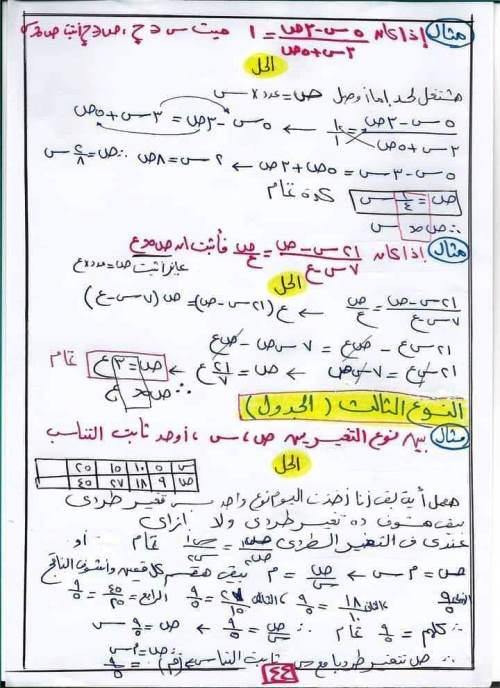 مثال إذا كان ٥س-٣ص / ٣س+٥ص = ١ حيث س ∈ ح ، ص ∈ ح أثبت ص ∝ س
الحل
هشتغل لحد اما أوصل ص = عدد × س
٥س-٣ص / ٣س+٥ص = ١/١ ← ٥س-٣ص = ٣س+٥ص
٥س-٣س = ٥ص+٣ص ← ٢س = ٨ص ∴ ص = ٢/٨ س
ص = ١/٤ س كده تمام
∴ ص ∝ س
مثال إذا كان ٢١س-ص / ٧س-ع = ص/ع فأثبت ان ص ∝ ع
عايز أثبت ص = عدد × ع
الحل
٢١س-ص / ٧س-ع = ص/ع ← ع (٢١س-ص) = ص (٧س-ع)
٢١س ع - ص ع = ٧س ص - ص ع
٢١س ع = ٧س ص ← ص = ٢١/٧ ع ← ص = ٣ع تمام
∴ ص ∝ ع
النوع الثالث (الجدول)
مثال بين نوع التغير بين ص ، س ، أوجد ثابت التناسب
الحل
س ٥ ١٠ ١٥ ٢٥
ص ٩ ١٨ ٢٧ ٤٥
نوع واحد بس تغير طردى
يبقى هشوف ده تغير طردى ولا ازاى
عندى فى التغير الطردى ص١/ص٢ = س١/س٢ تمام أو
ص = م س ← ص/س = م يبقى هقسم كل قيمتين وأشوف الناتج
٩/٥ ١٨/١٠ = ٩/٥ ، الثالثة ٢٧/١٥ = ٩/٥ الرابع = ٤٥/٢٥ = ٩/٥
∴ كلهم = ٩/٥ تمام ∴ ص/س = ٩/٥ ← ص = ٩/٥ س
∴ ص = م س
∴ ص تتغير طرديا مع س ثابت التناسب (م) = ٩/٥
٤٤